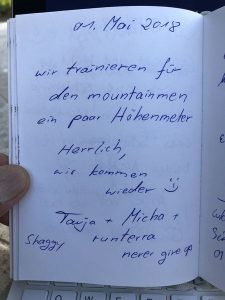 01. Mai 2018
wir trainieren für
den mountainmen
ein paar Höhenmeter
Herrlich,
wir kommen
wieder :)
Tanja + Micha +
Shaggy runterra
never give up